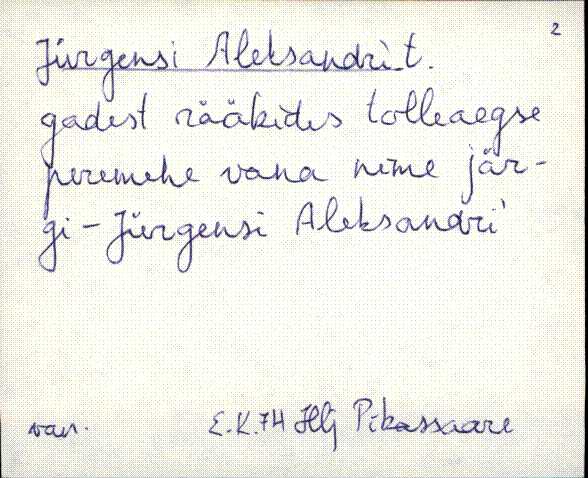 2
Jürgensi Aleksandri t.
gadest rääkides tolleaegse
peremehe vana nime jär-
gi - Jürgensi Aleksandri
van. E.K.74 Hlj Pikassaare